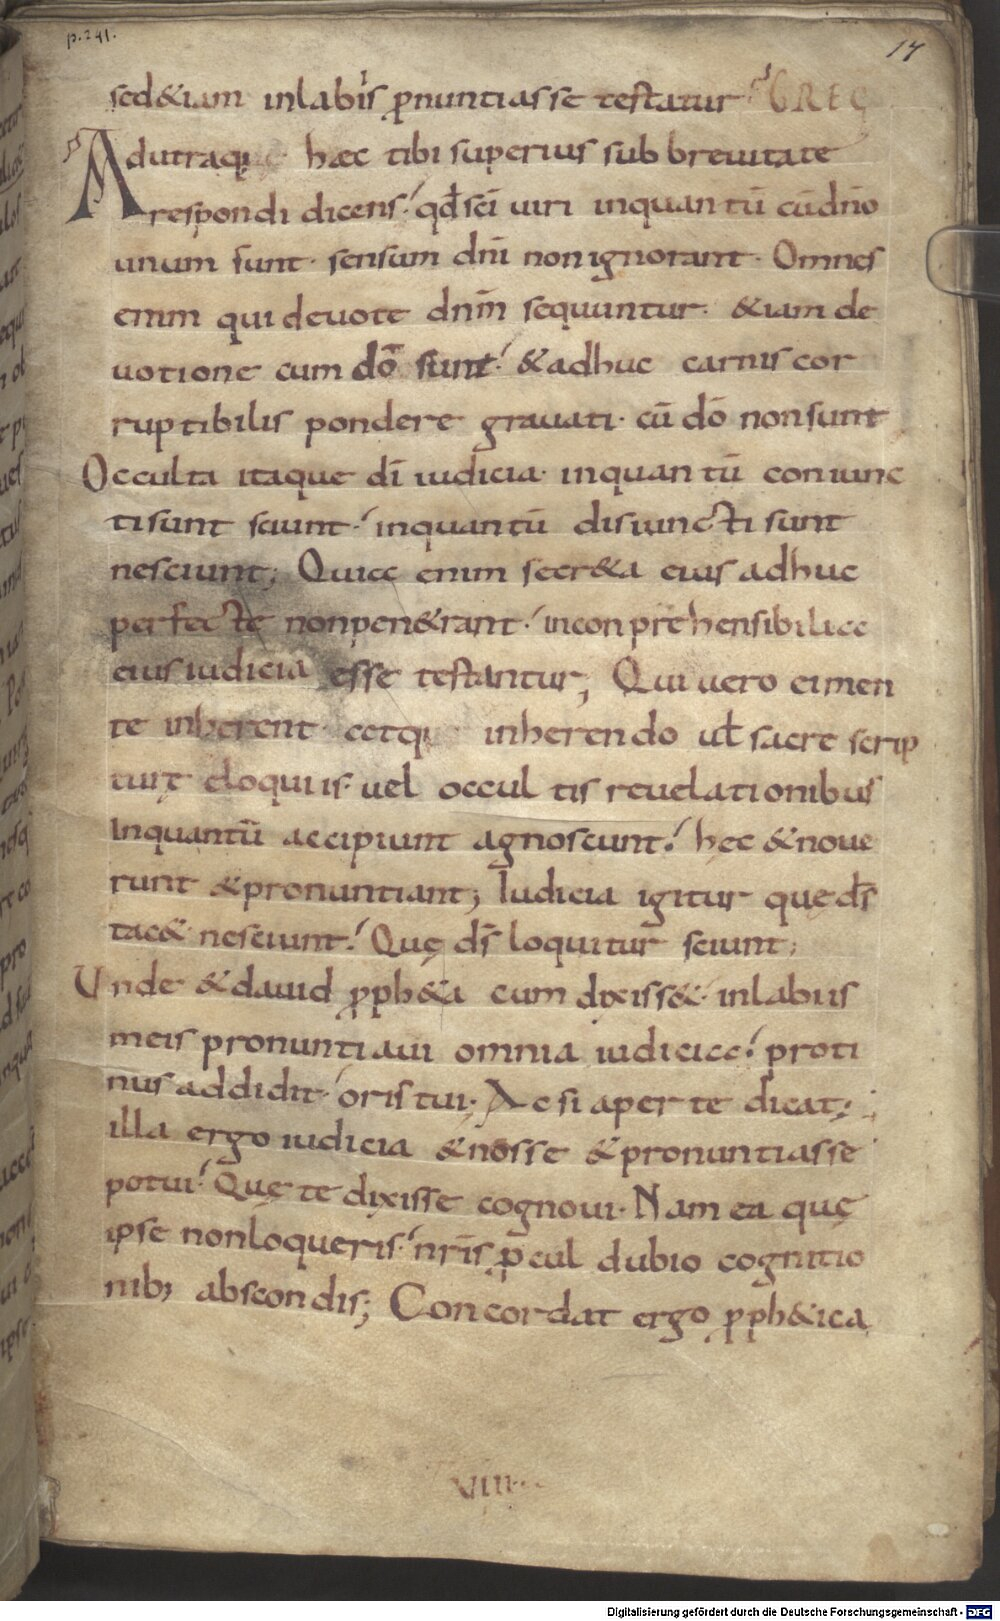 p. 241.
17
sed&iam inlabiis ꝓnuntiasse testatur GREG
Adutraque hæc tibi superius sub breuitate
respondi dicens. qđ sc̄i uiri inquantū cūdn̄o
unum sunt. sensum dn̄i non ignorant. Omnes
enim qui deuote dnm̄ sequuntur. &iam de
uotione cum dō sunt. &adhuc carnis cor
ruptibilis pondere grauati. cū dō nonsunt
Occulta itaque dī iudicia. inquantū coniunc
tisunt sciunt. inquantū disiuncti sunt
nesciunt; Quia enim secr&a eius adhuc
perfecte nonpen&rant. inconprehensibilia
eius iudicia esse testantur; Qui uero eimen
te inherent atque inherendo uł sacre scrip
turę eloquiis. uel occultis reuelationibus
Inquantū accipiunt agnoscunt. hęc &noue
runt &pronuntiant; Iudicia igitur quęds̄
tac& nesciunt. Quę ds̄ loquitur sciunt;
Unde &dauid ꝓph&a cum dixiss&. inlabiis
meis pronuntiaui omnia iudicia. proti
nus addidit. oris tui. Ac si aperte dicat;
illa ergo iudicia &nosse &pronuntiasse
potui. Quę te dixisse cognoui. Nam ea quę
ipse nonloqueris. nr̄is ꝓcul dubio cognitio
nib; abscondis; Concordat ergo ꝓph&ica
VIII.
Digitalisierung gefördert durch die Deutsche Forschungsgemeinschaft - DFG